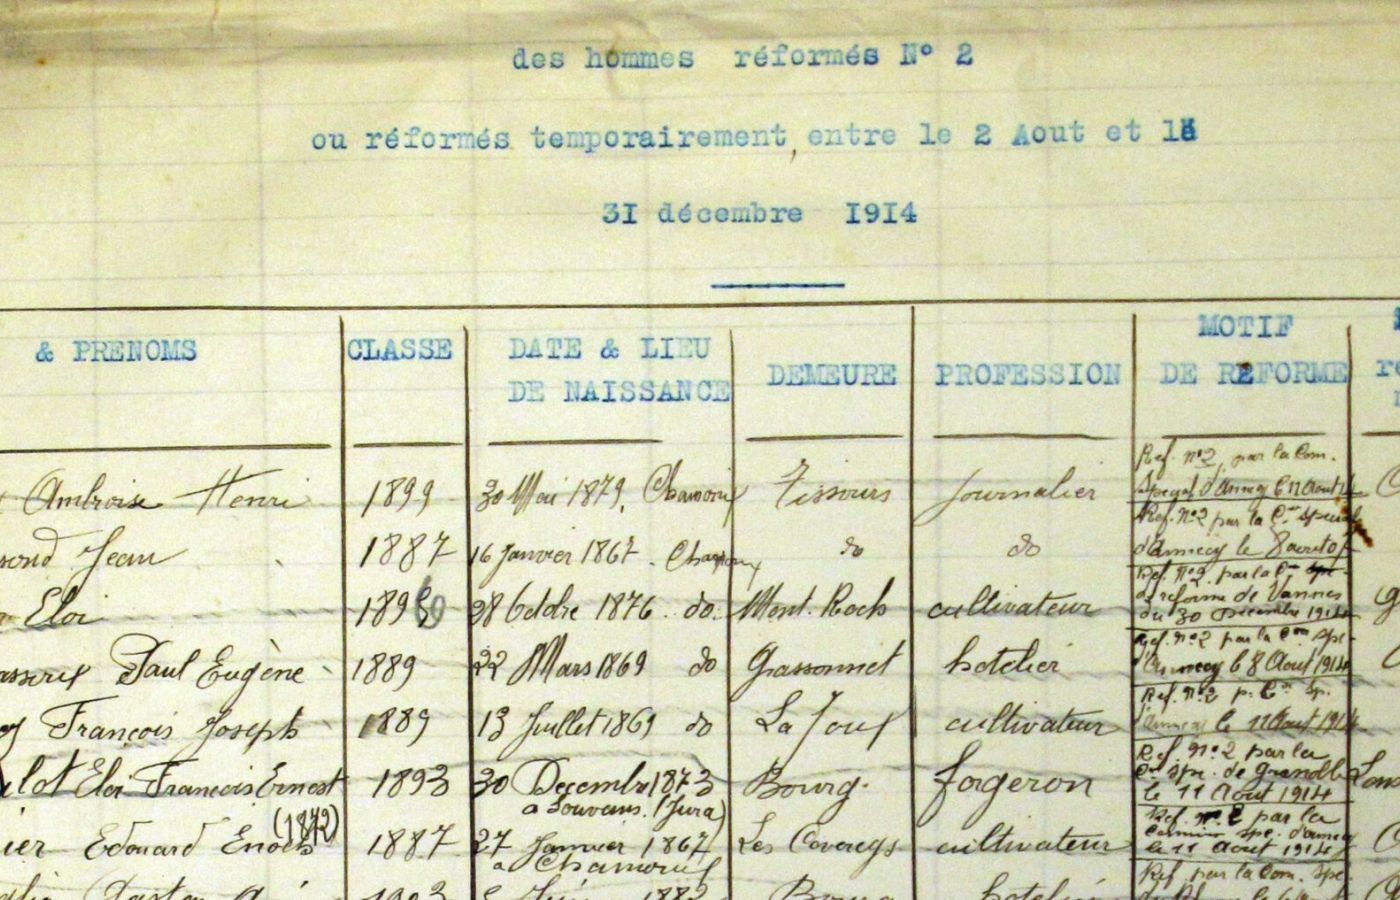 des hommes réformés N° 2
ou réformés temporairement, entre le 2 Aout et le
31 décembre 1914
& PRENOMS CLASSE DATE & LIEU DE NAISSANCE DEMEURE PROFESSION MOTIF DE REFORME
Ambroise Henri 1899 30 Mai 1879. Chamonix Tissours journalier Ref. n°2, par la Com. Special d'Annecy le 11 Aout 14
Jean 1887 16 Janvier 1867. Chamonix do do Ref. N°2 par la Con Special d'Annecy le 8 aout
Eloi 189 28 Octobre 1876 do. Mont. Roch cultivateur Ref. N°2 par la Con de réforme de Vannes du 30 Decembre 1914
Paul Eugène 1889 22 Mars 1869 do Gassonnet hotelier Ref. n°2 par la Com Spe- d'Annecy le 8 Aout 1914
François Joseph 1889 13 Juillet 1869 do La Joux cultivateur Ref. n°2 p. Con Sp. d'Annecy le 11 Aout 1914
Eloi François Ernest 1893 30 Decembre 1873 a Louvans (Jura) Bourg. forgeron Ref. N°2 par la Con spe. de Grenoble le 11 Aout 1914
ier Edouard Enoch (1872) 1887 27 Janvier 1867 a Chamonix Les cultivateur Ref. n° 2 par la Commion spe. d'annecy le 11 aout 1914
Gaston 1903 1883 Bourg hotelier Ref. par la Com. Spe.